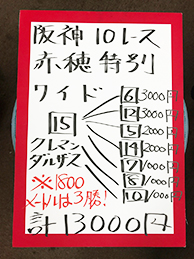 阪神10レース
赤穂特別
ワイド
15
クレマン
ダルザス
6 3000円
12 3000円
5 2000円
14 2000円
7 1000円
8 1000円
10 1000円
※1800
メートルは3勝!
計13000円